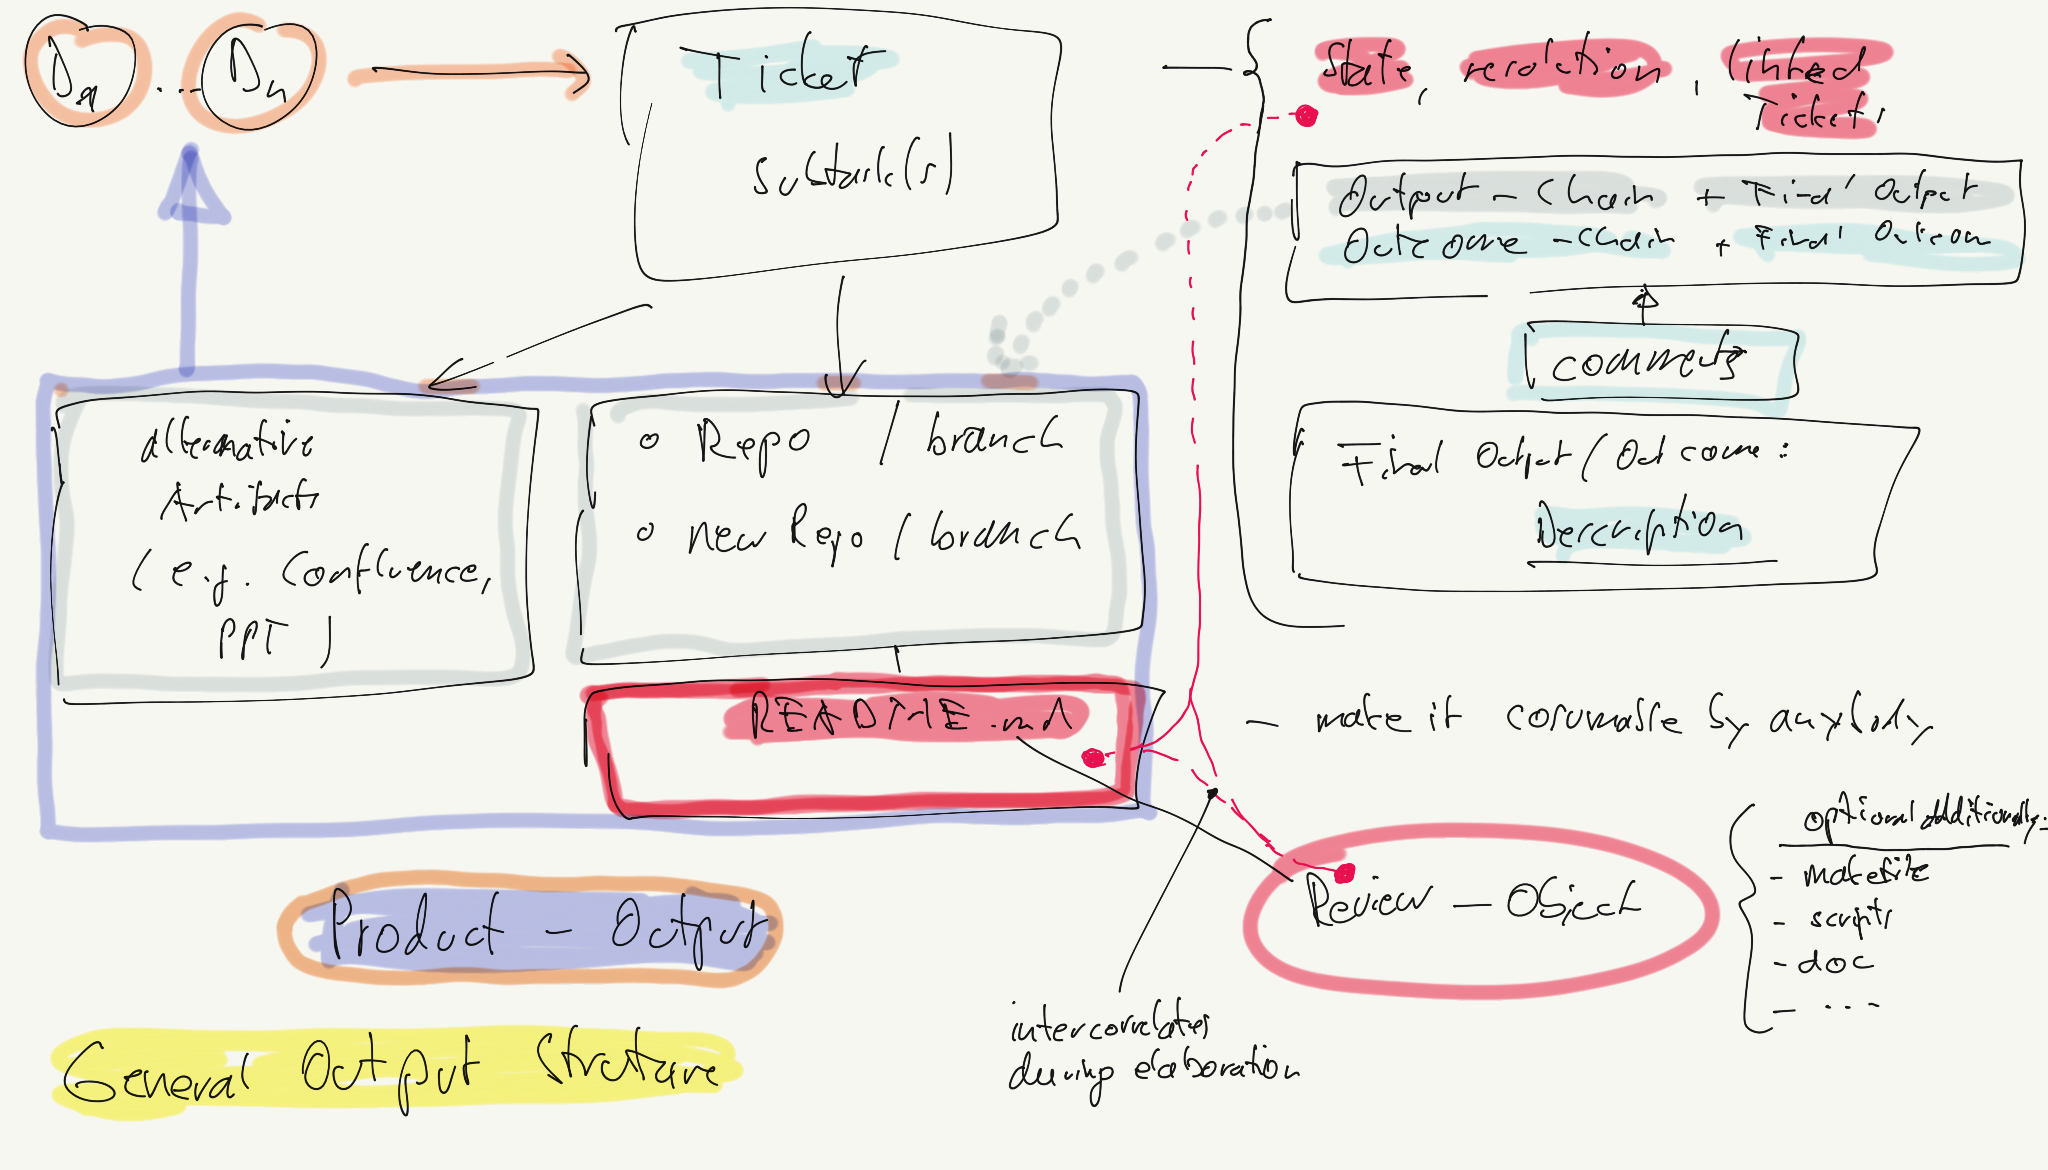 D ... Dn
Ticket
subtask(s)
State, resolution, linked
Tickets
Output - Chain + Final Output
Outcome - Chain + Final Outcom
comments
Final Output / Outcome:
Description
alternative
Artifacts
(e.g. Confluence,
PPT)
o Repo / branch
o new Repo / branch
README.md
- make it consumable by anybody
Review - Object
optional additionally:
- makefile
- scripts
- doc
- ...
intercorrelates
during elaboration
Product - Output
General Output Structure